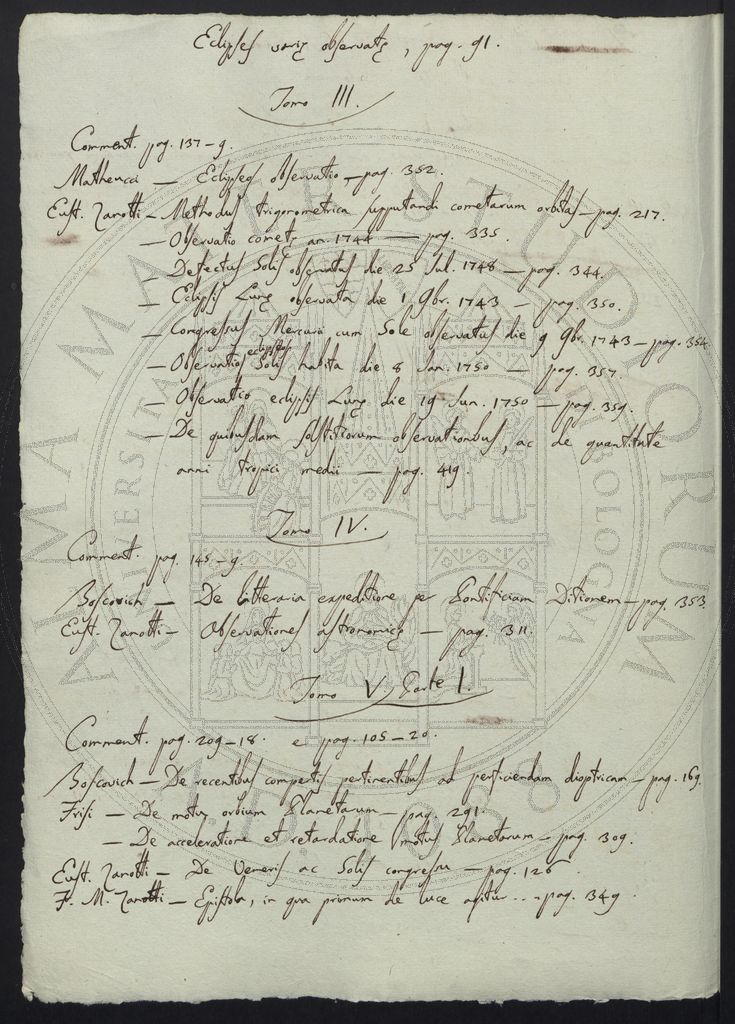 Eclipses varię observatę, pag. 91.
Tomo III.
Comment. pag. 137-9.
Matheucci — Eclipseos observatio — pag. 352.
Eust. Zanotti — Methodus trigonometrica supputandi cometarum orbitas — pag. 217.
— Observatio cometę an. 1744 — pag. 335.
— Defectus Solis observatus die 25 Jul. 1748 — pag. 344.
— Eclipsis Lunę observata die 1 9br. 1743 — pag. 350.
— Congressus Mercurii cum Sole observatus die 9 9br. 1743 — pag. 354.
— Observatio eclipseos Solis habita die 8 Jan. 1750 — pag. 357.
— Observatio eclipsis Lunę die 19 Jun. 1750 — pag. 359.
— De quibusdam solstitiorum observationibus, ac de quantitate
anni tropici medii — pag. 419.
Tomo IV.
Comment. pag. 145-9.
Boscovich — De litteraria expeditione per Pontificiam Ditionem — pag. 353.
Eust. Zanotti — Observationes astronomicę — pag. 311.
Tomo V, Parte I.
Comment. pag. 209-18. e pag. 105-20.
Boscovich — De recentibus compertis pertinentibus ad perficiendam dioptricam — pag. 169.
Frisi — De motu orbium Planetarum — pag. 291.
— De acceleratione et retardatione motus Planetarum — pag. 309.
Eust. Zanotti — De Veneris ac Solis congressu — pag. 126.
F. M. Zanotti — Epistola, in qua primum de luce agitur... — pag. 349.
ALMA MATER STUDIORUM
UNIVERSIMA
BONONIA
A.D. 1088